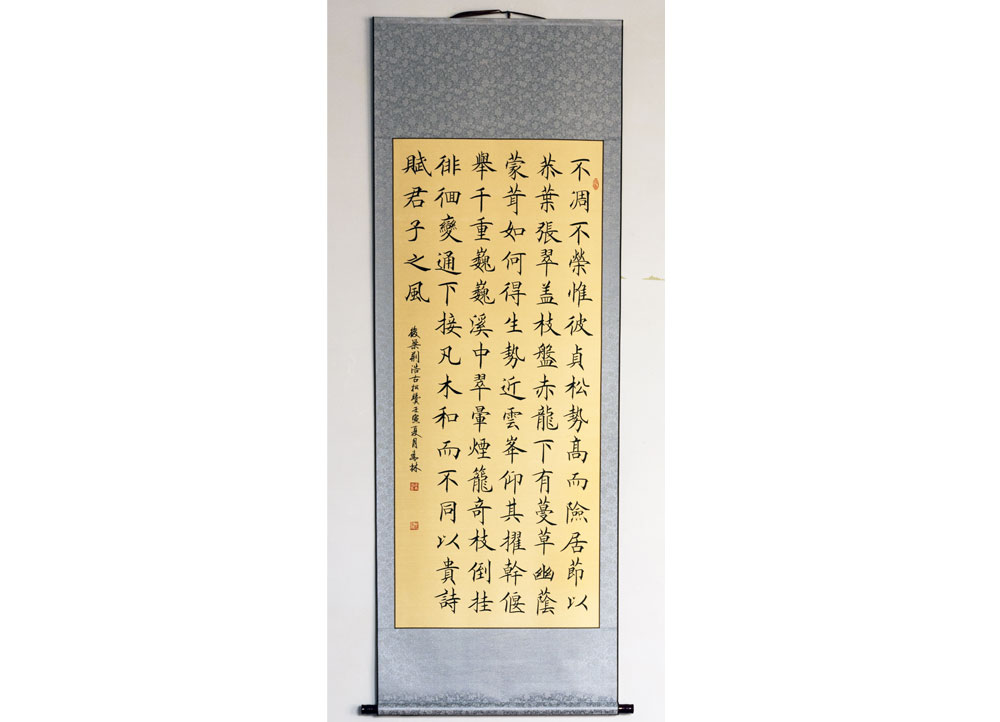 不凋不榮惟彼貞松勢高而險居節以
恭葉張翠盖枝盤赤龍下有蔓草幽蔭
蒙茸如何得生勢近雲峯仰其擢幹偃
舉千重巍巍溪中翠暈煙籠奇枝倒挂
徘徊變通下接凡木和而不同以貴詩
賦君子之風
後梁荊浩古松贊壬寅夏月春林